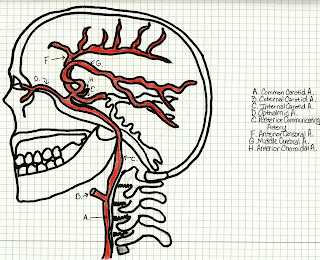 F
G
H
E
D.
C
B.
A.
A. Common Carotid A.
B. External Carotid A.
C. Internal Carotid A.
D. Opthalmic A.
E. Posterior Communicating
Artery
F. Anterior Cerebral A.
G. Middle Cerebral A.
H. Anterior Choroidal A.